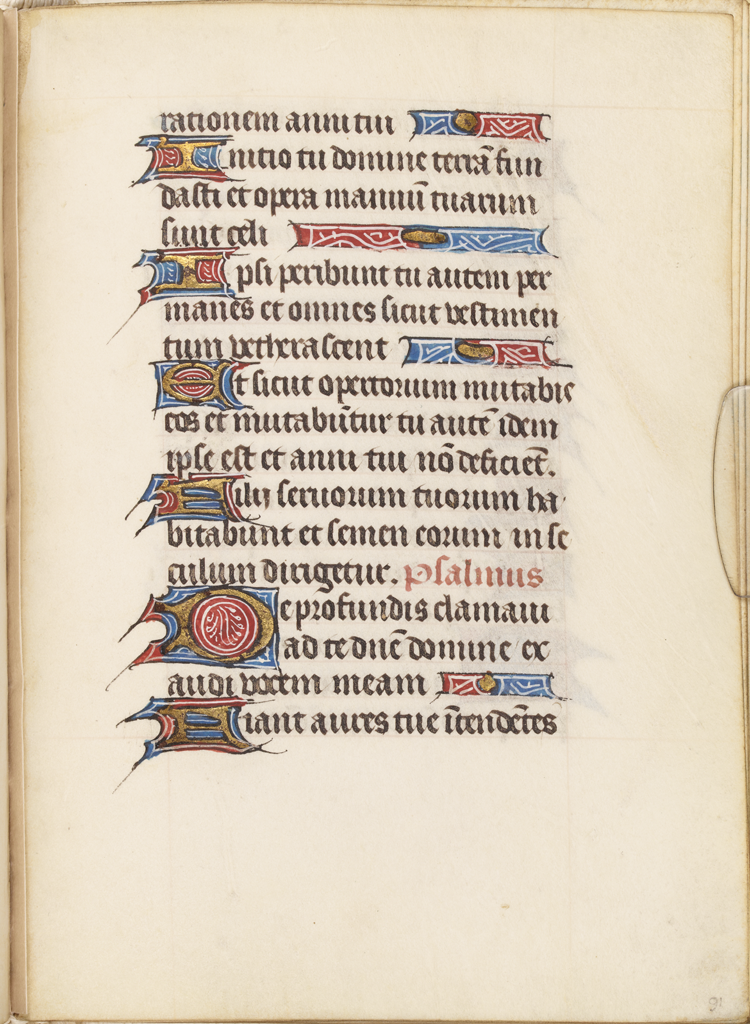 rationem anni tui
Initio tu domine terrā fun
dasti et opera manuū tuarum
sunt celi
Ipsi peribunt tu autem per
manes et omnes sicut vestimen
tum vetherascent
Et sicut opertorium mutabis
eos et mutabūtur tu autē idem
ipse est et anni tui nō deficiēt.
Filij seruorum tuorum ha
bitabunt et semen eorum in se
culum dirigetur. Psalmus
De profundis clamaui
ad te dnē domine ex
audi vocem meam
Fiant aures tue ītendētes